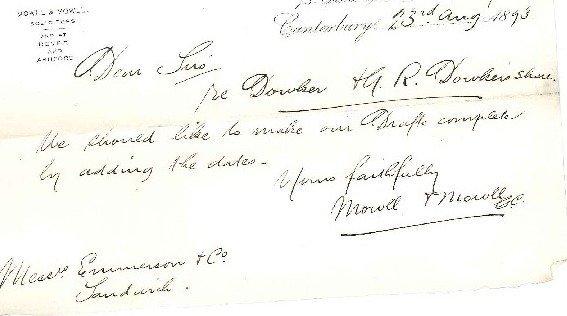 MOWLL & MOWLL
SOLICITORS
AND AT
DOVER
AND
ASHFORD
Canterbury, 23rd Aug 1893
Dear Sirs
re Dowker & G. R. Dowker's share.
We should like to make our Drafts complete
by adding the dates -
Yours faithfully
Mowll & Mowll
Messrs Emmerson & Co
Sandwich.